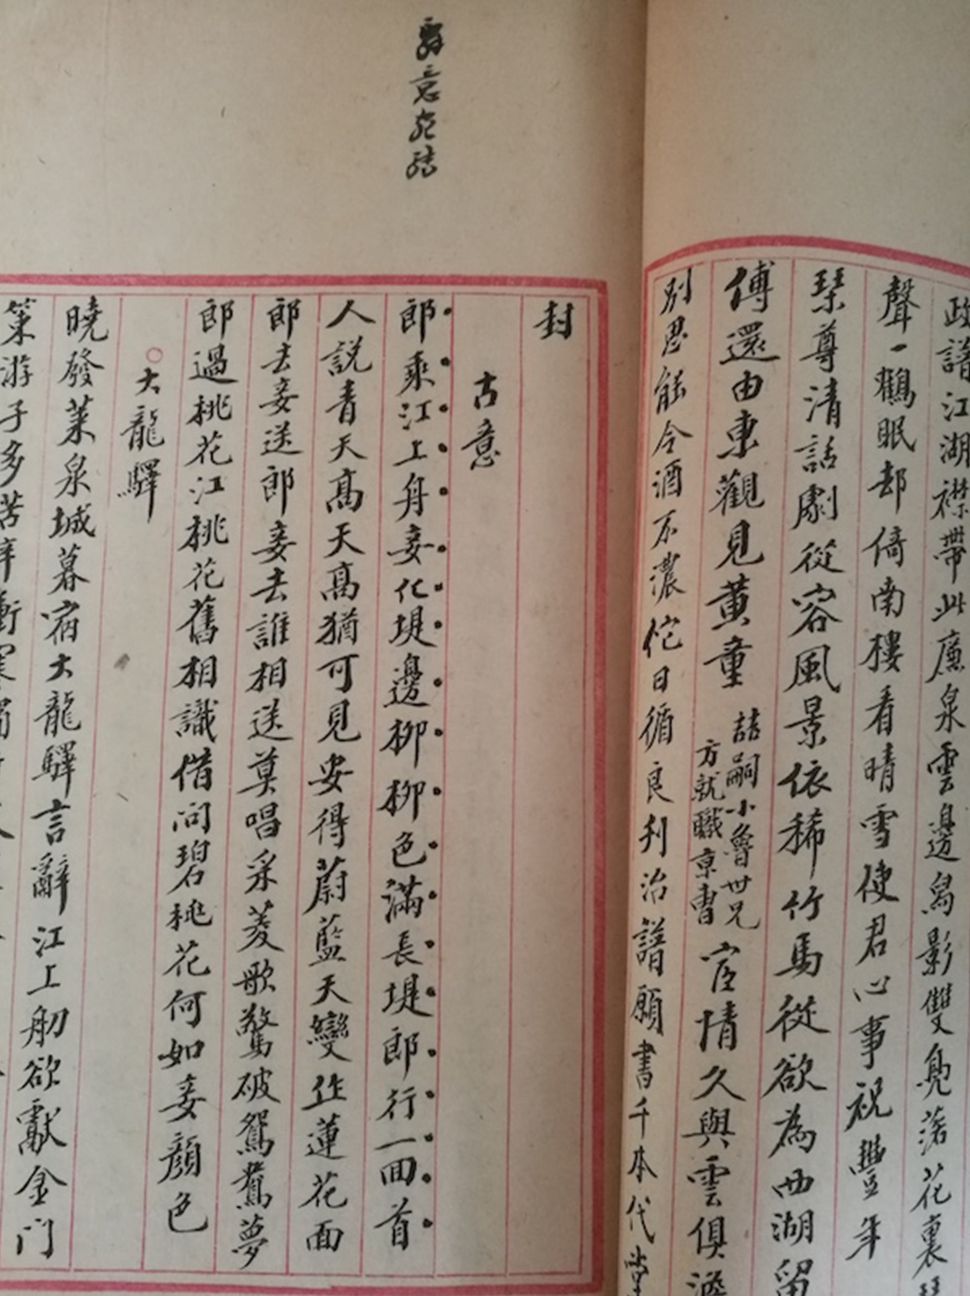 政譜江湖襟帶此廉泉雲邊舄影雙鳧落花裏
聲一鶴眠却倚南樓看晴雪使君心事祝豐年
琴尊清話劇從容風景依稀竹馬從欲為西湖留
傅還由東觀見黃童
喆嗣小魯世兄
方就職京曹
宦情久與雲俱澹
別思能令酒不濃佗日循良列治譜願書千本代
意
封
古意
郎乘江上舟妾化堤邊柳柳色滿長堤郎行一回首
人說青天高天高猶可見安得蔚藍天變作蓮花面
郎去妾送郎妾去誰相送莫唱采菱歌驚破鴛鴦夢
郎過桃花江桃花舊相識借問碧桃花何如妾顏色
大龍驛
曉發萊泉城暮宿大龍驛言辭江上舠欲獻金門
策游子多苦辛衝